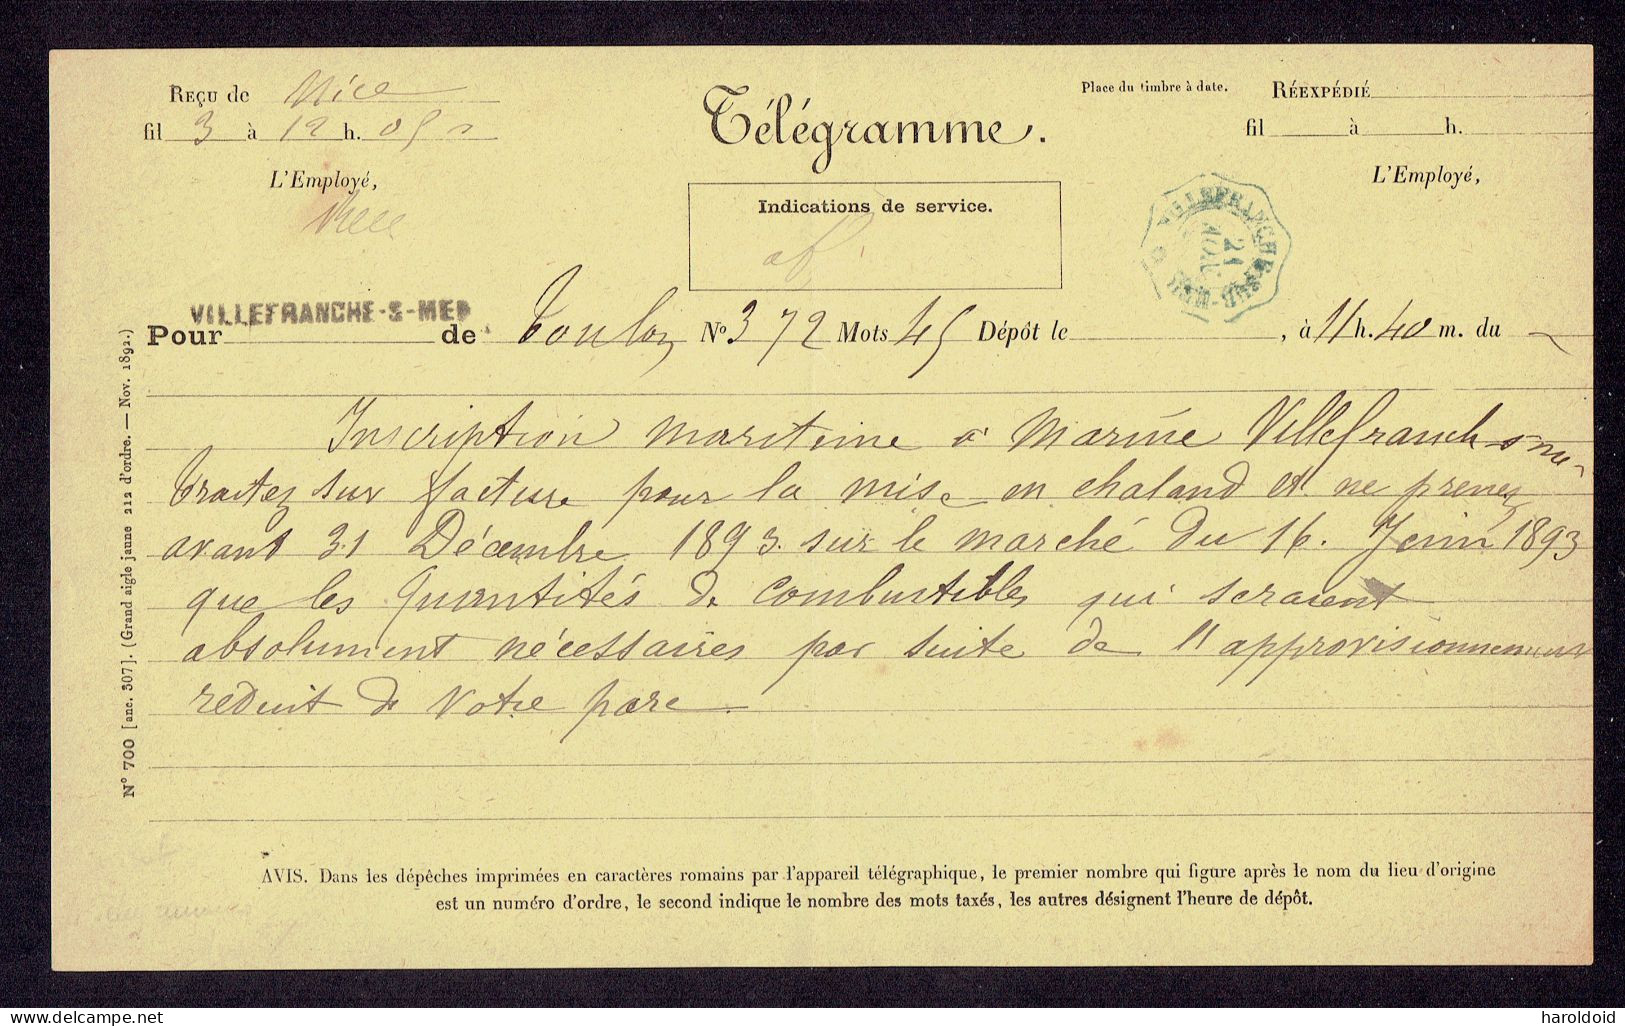 Reçu de Nice
fil 3 à 12 h. 05
L'Employé,
Télégramme.
Indications de service.
Place du timbre à date.
RÉEXPÉDIÉ
fil à h.
L'Employé,
VILLEFRANCHE-SUR-MER
21
VILLEFRANCHE-S-MER
Pour de Toulon N° 372 Mots 45 Dépôt le , à 11 h. 40 m. du
Inscription maritime à Marine Villefranch s mer
traitez sur facture pour la mise en chaland et ne prenez
avant 31 Décembre 1893. sur le marché du 16. Juin 1893
que les quantités de combustibles qui seraient
absolument nécessaires par suite de l'approvisionnement
réduit de votre parc.
N° 700 [anc. 307]. (Grand aigle jaune 212 d'ordre. — Nov. 1892.)
AVIS. Dans les dépêches imprimées en caractères romains par l'appareil télégraphique, le premier nombre qui figure après le nom du lieu d'origine
est un numéro d'ordre, le second indique le nombre des mots taxés, les autres désignent l'heure de dépôt.
delcampe.net
haroldoid